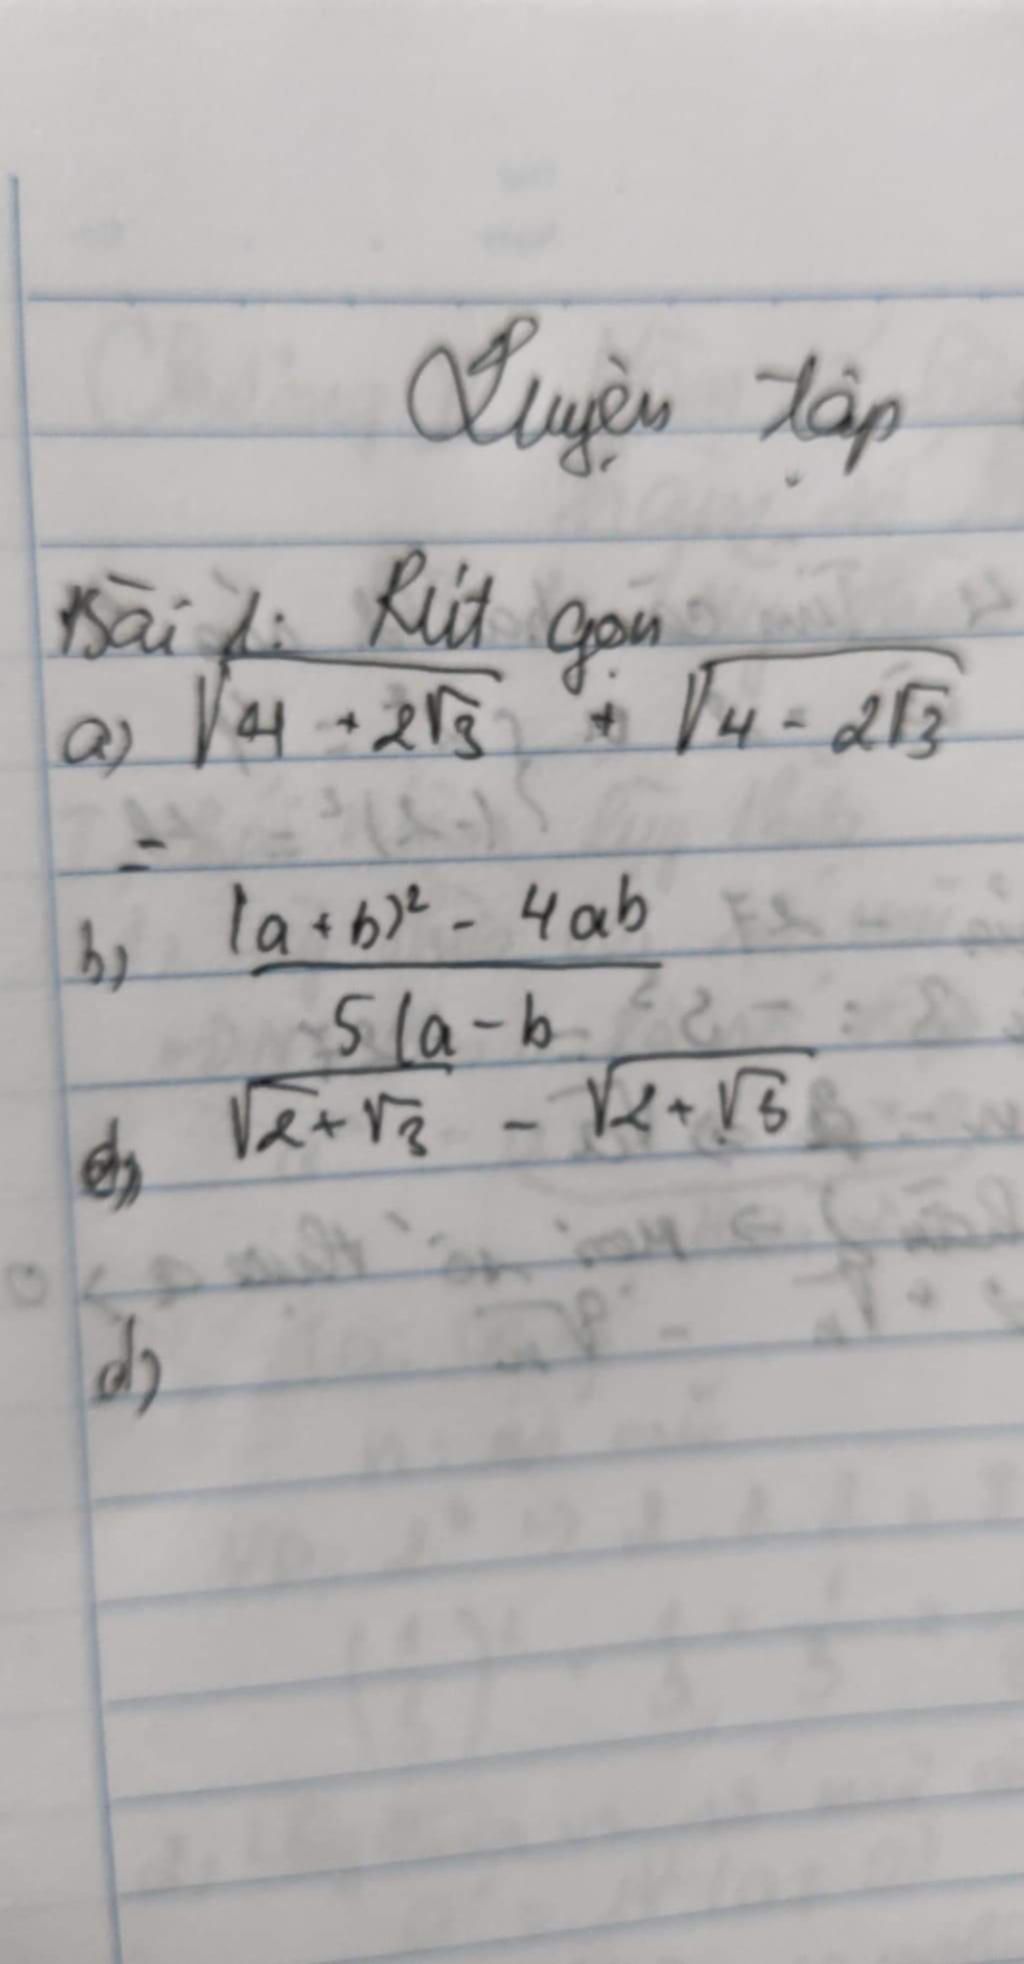 Luyện tập
Bài 1: Rút gọn
a) √(4 + 2√3) + √(4 - 2√3)
=
b) ((a + b)² - 4ab) / (5(a - b
c) √(2 + √3) - √(2 + √5)
d)